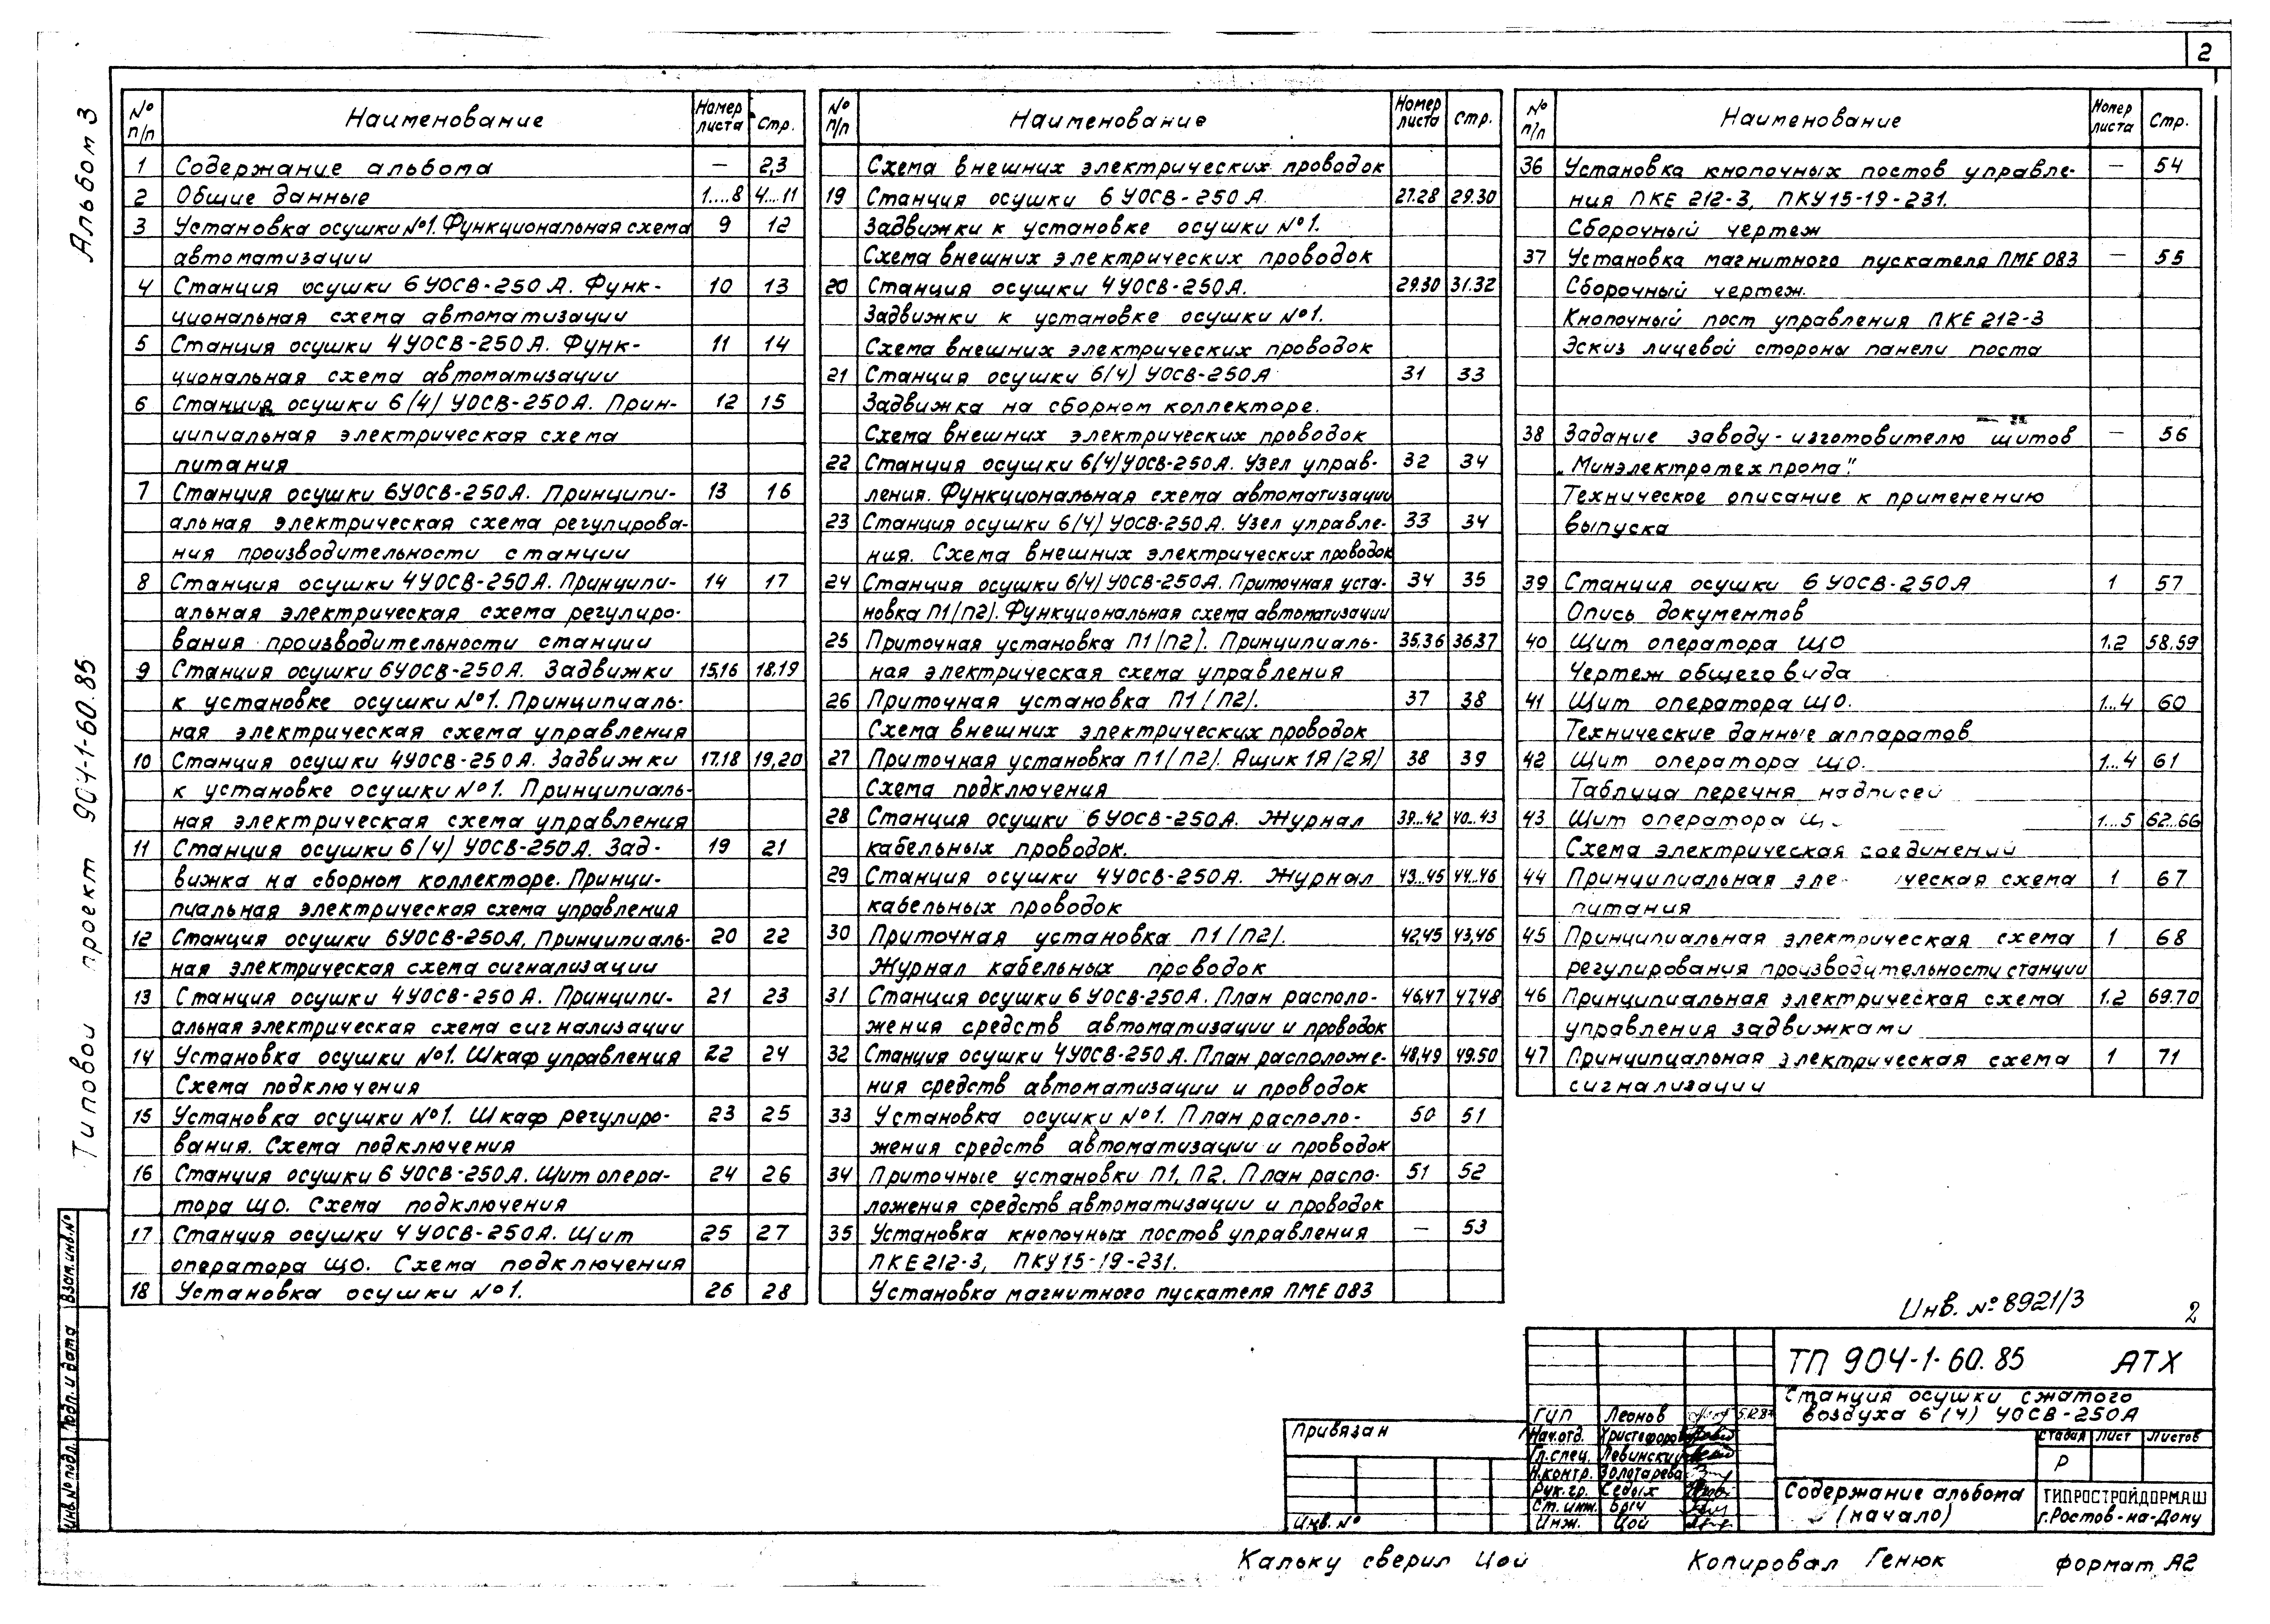 2
Альбом 3
Типовой проект 904-1-60.85
№ п/п Наименование Номер листа Стр.
1 Содержание альбома — 2,3
2 Общие данные 1....8 4...11
3 Установка осушки №1. Функциональная схема 9 12
автоматизации
4 Станция осушки 6УОСВ-250А. Функ- 10 13
циональная схема автоматизации
5 Станция осушки 4УОСВ-250А. Функ- 11 14
циональная схема автоматизации
6 Станция осушки 6(4) УОСВ-250А. Прин- 12 15
ципиальная электрическая схема
питания
7 Станция осушки 6УОСВ-250А. Принципи- 13 16
альная электрическая схема регулирова-
ния производительности станции
8 Станция осушки 4УОСВ-250А. Принципи- 14 17
альная электрическая схема регулиро-
вания производительности станции
9 Станция осушки 6УОСВ-250А. Задвижки 15,16 18,19
к установке осушки №1. Принципиаль-
ная электрическая схема управления
10 Станция осушки 4УОСВ-250А. Задвижки 17.18 19,20
к установке осушки №1. Принципиаль-
ная электрическая схема управления
11 Станция осушки 6(4) УОСВ-250А. Зад- 19 21
вижка на сборном коллекторе. Принци-
пиальная электрическая схема управления
12 Станция осушки 6УОСВ-250А. Принципиаль- 20 22
ная электрическая схема сигнализации
13 Станция осушки 4УОСВ-250А. Принципи- 21 23
альная электрическая схема сигнализации
14 Установка осушки №1. Шкаф управления 22 24
Схема подключения
15 Установка осушки №1. Шкаф регулиро- 23 25
вания. Схема подключения
16 Станция осушки 6 УОСВ-250А. Щит опера- 24 26
тора ЩО. Схема подключения
17 Станция осушки 4 УОСВ-250А. Щит 25 27
оператора ЩО. Схема подключения
18 Установка осушки №1. 26 28
№ п/п Наименование Номер листа Стр.
Схема внешних электрических проводок
19 Станция осушки 6 УОСВ-250А. 27.28 29.30
Задвижки к установке осушки №1.
Схема внешних электрических проводок
20 Станция осушки 4УОСВ-250А. 29.30 31.32
Задвижки к установке осушки №1.
Схема внешних электрических проводок
21 Станция осушки 6(4) УОСВ-250А 31 33
Задвижка на сборном коллекторе.
Схема внешних электрических проводок
22 Станция осушки 6(4)УОСВ-250А. Узел управ- 32 34
ления. Функциональная схема автоматизации
23 Станция осушки 6(4) УОСВ-250А. Узел управле- 33 34
ния. Схема внешних электрических проводок
24 Станция осушки 6(4) УОСВ-250А. Приточная уста- 34 35
новка П1(П2). Функциональная схема автоматизации
25 Приточная установка П1(П2). Принципиаль- 35,36 36,37
ная электрическая схема управления
26 Приточная установка П1(П2). 37 38
Схема внешних электрических проводок
27 Приточная установка П1(П2). Ящик 1Я(2Я) 38 39
Схема подключения
28 Станция осушки 6УОСВ-250А. Журнал 39...42 40...43
кабельных проводок.
29 Станция осушки 4УОСВ-250А. Журнал 43...45 44...46
кабельных проводок
30 Приточная установка П1(П2). 42,45 43,46
Журнал кабельных проводок
31 Станция осушки 6 УОСВ-250А. План располо- 46,47 47,48
жения средств автоматизации и проводок
32 Станция осушки 4УОСВ-250А. План расположе- 48,49 49.50
ния средств автоматизации и проводок
33 Установка осушки №1. План располо- 50 51
жения средств автоматизации и проводок
34 Приточные установки П1, П2. План распо- 51 52
ложения средств автоматизации и проводок
35 Установка кнопочных постов управления — 53
ПКЕ212-3, ПКУ15-19-231.
Установка магнитного пускателя ПМЕ 083
№ п/п Наименование Номер листа Стр.
36 Установка кнопочных постов управле- — 54
ния ПКЕ 212-3, ПКУ15-19-231.
Сборочный чертеж
37 Установка магнитного пускателя ПМЕ 083 — 55
Сборочный чертеж.
Кнопочный пост управления ПКЕ 212-3
Эскиз лицевой стороны панели поста
38 Задание заводу-изготовителю щитов — 56
„Минэлектротехпрома".
Техническое описание к применению
выпуска
39 Станция осушки 6УОСВ-250А 1 57
Опись документов
40 Щит оператора ЩО 1.2 58,59
Чертеж общего вида
41 Щит оператора ЩО. 1...4 60
Технические данные аппаратов
42 Щит оператора ЩО. 1...4 61
Таблица перечня надписей
43 Щит оператора Щ 1...5 62...66
Схема электрическая соединений
44 Принципиальная эле ическая схема 1 67
питания
45 Принципиальная электрическая схема 1 68
регулирования производительности станции
46 Принципиальная электрическая схема 1.2 69.70
управления задвижками
47 Принципиальная электрическая схема 1 71
сигнализации
Инв. № 8921/3 2
ТП 904-1-60.85 АТХ
Станция осушки сжатого
воздуха 6(4) УОСВ-250А
Стадия Лист Листов
Р
Содержание альбома
(начало)
ГИПРОСТРОЙДОРМАШ
г.Ростов-на-Дону
ГИП Леонов
Нач.отд. Христофоров
Гл.спец. Левинский
Н.контр. Золотарева
Рук.гр. Седых
Ст.инж. Брич
Инж. Цой
Привязан
Инв. №
Инв.№ подл. Подп. и дата Взам.инв.№
Кальку сверил Цой Копировал Генюк формат А2